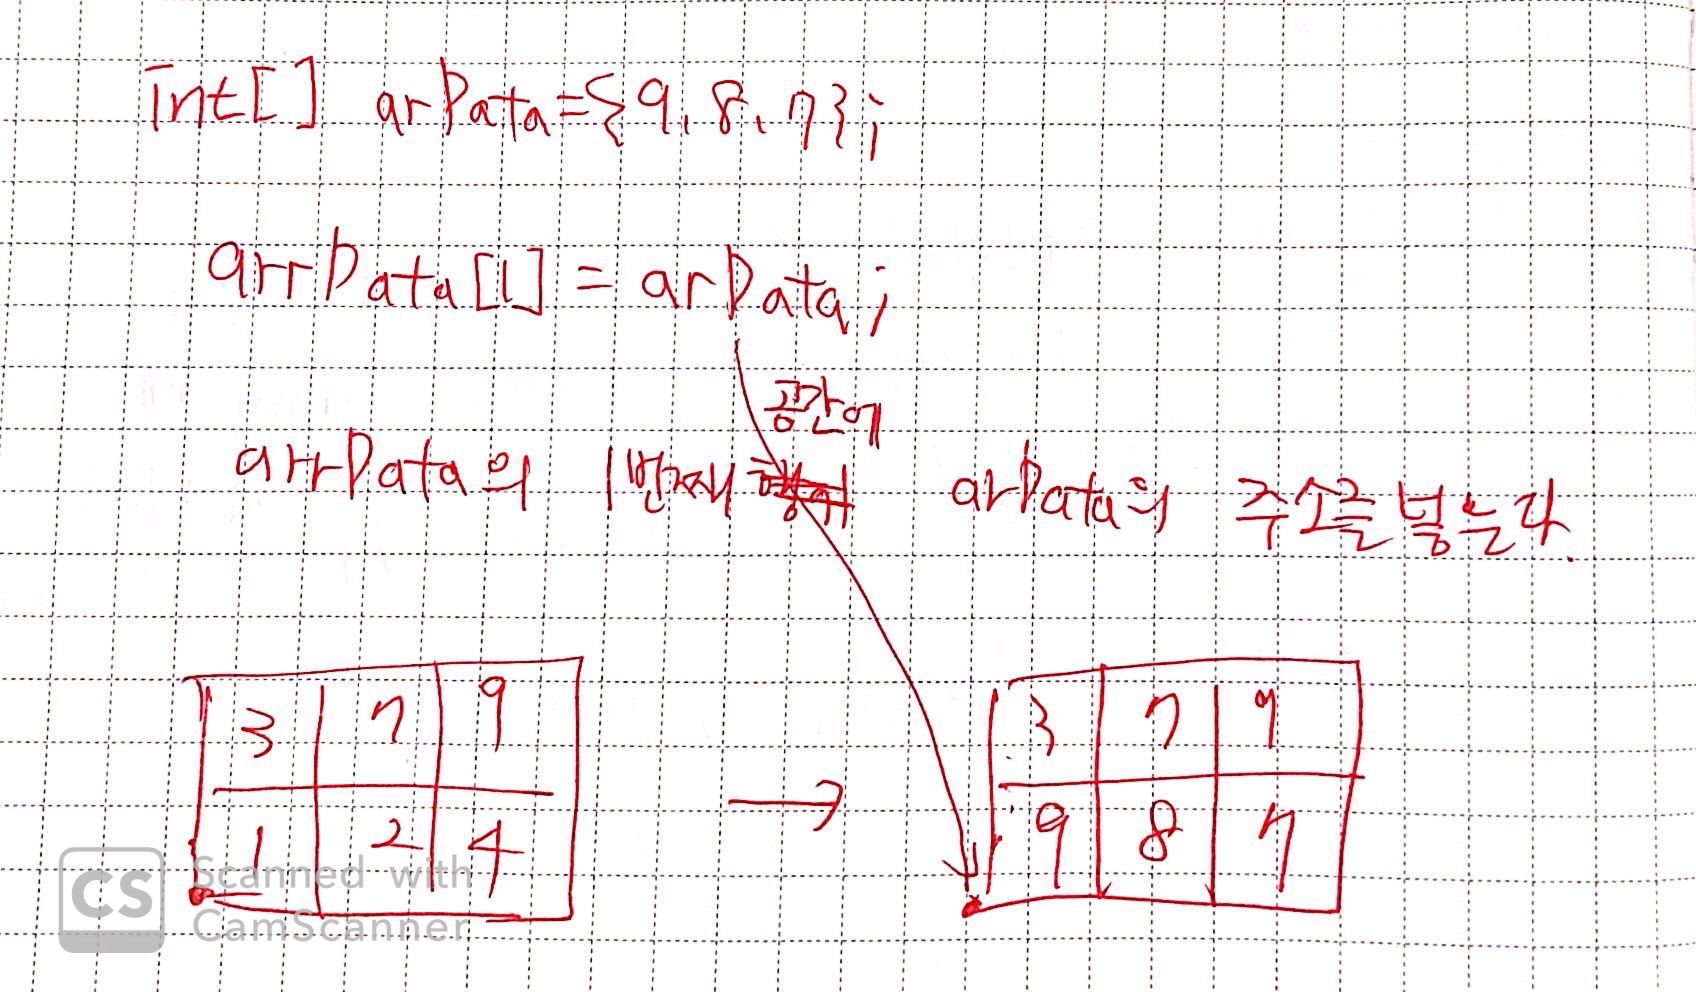 int[] arData={9,8,7};
arrData[1] = arData;
공간에
arrData의 1번째 arData의 주소를 넣는다.
3 7 9 3 7 9
→
1 2 4 9 8 7
CS Scanned with
CamScanner